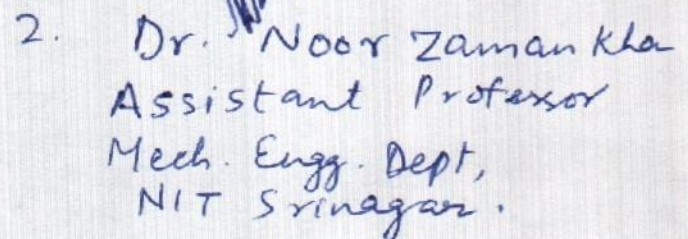 2. Dr. Noor Zaman Kha
Assistant Professor
Mech. Engg. Dept,
NIT Srinagar.